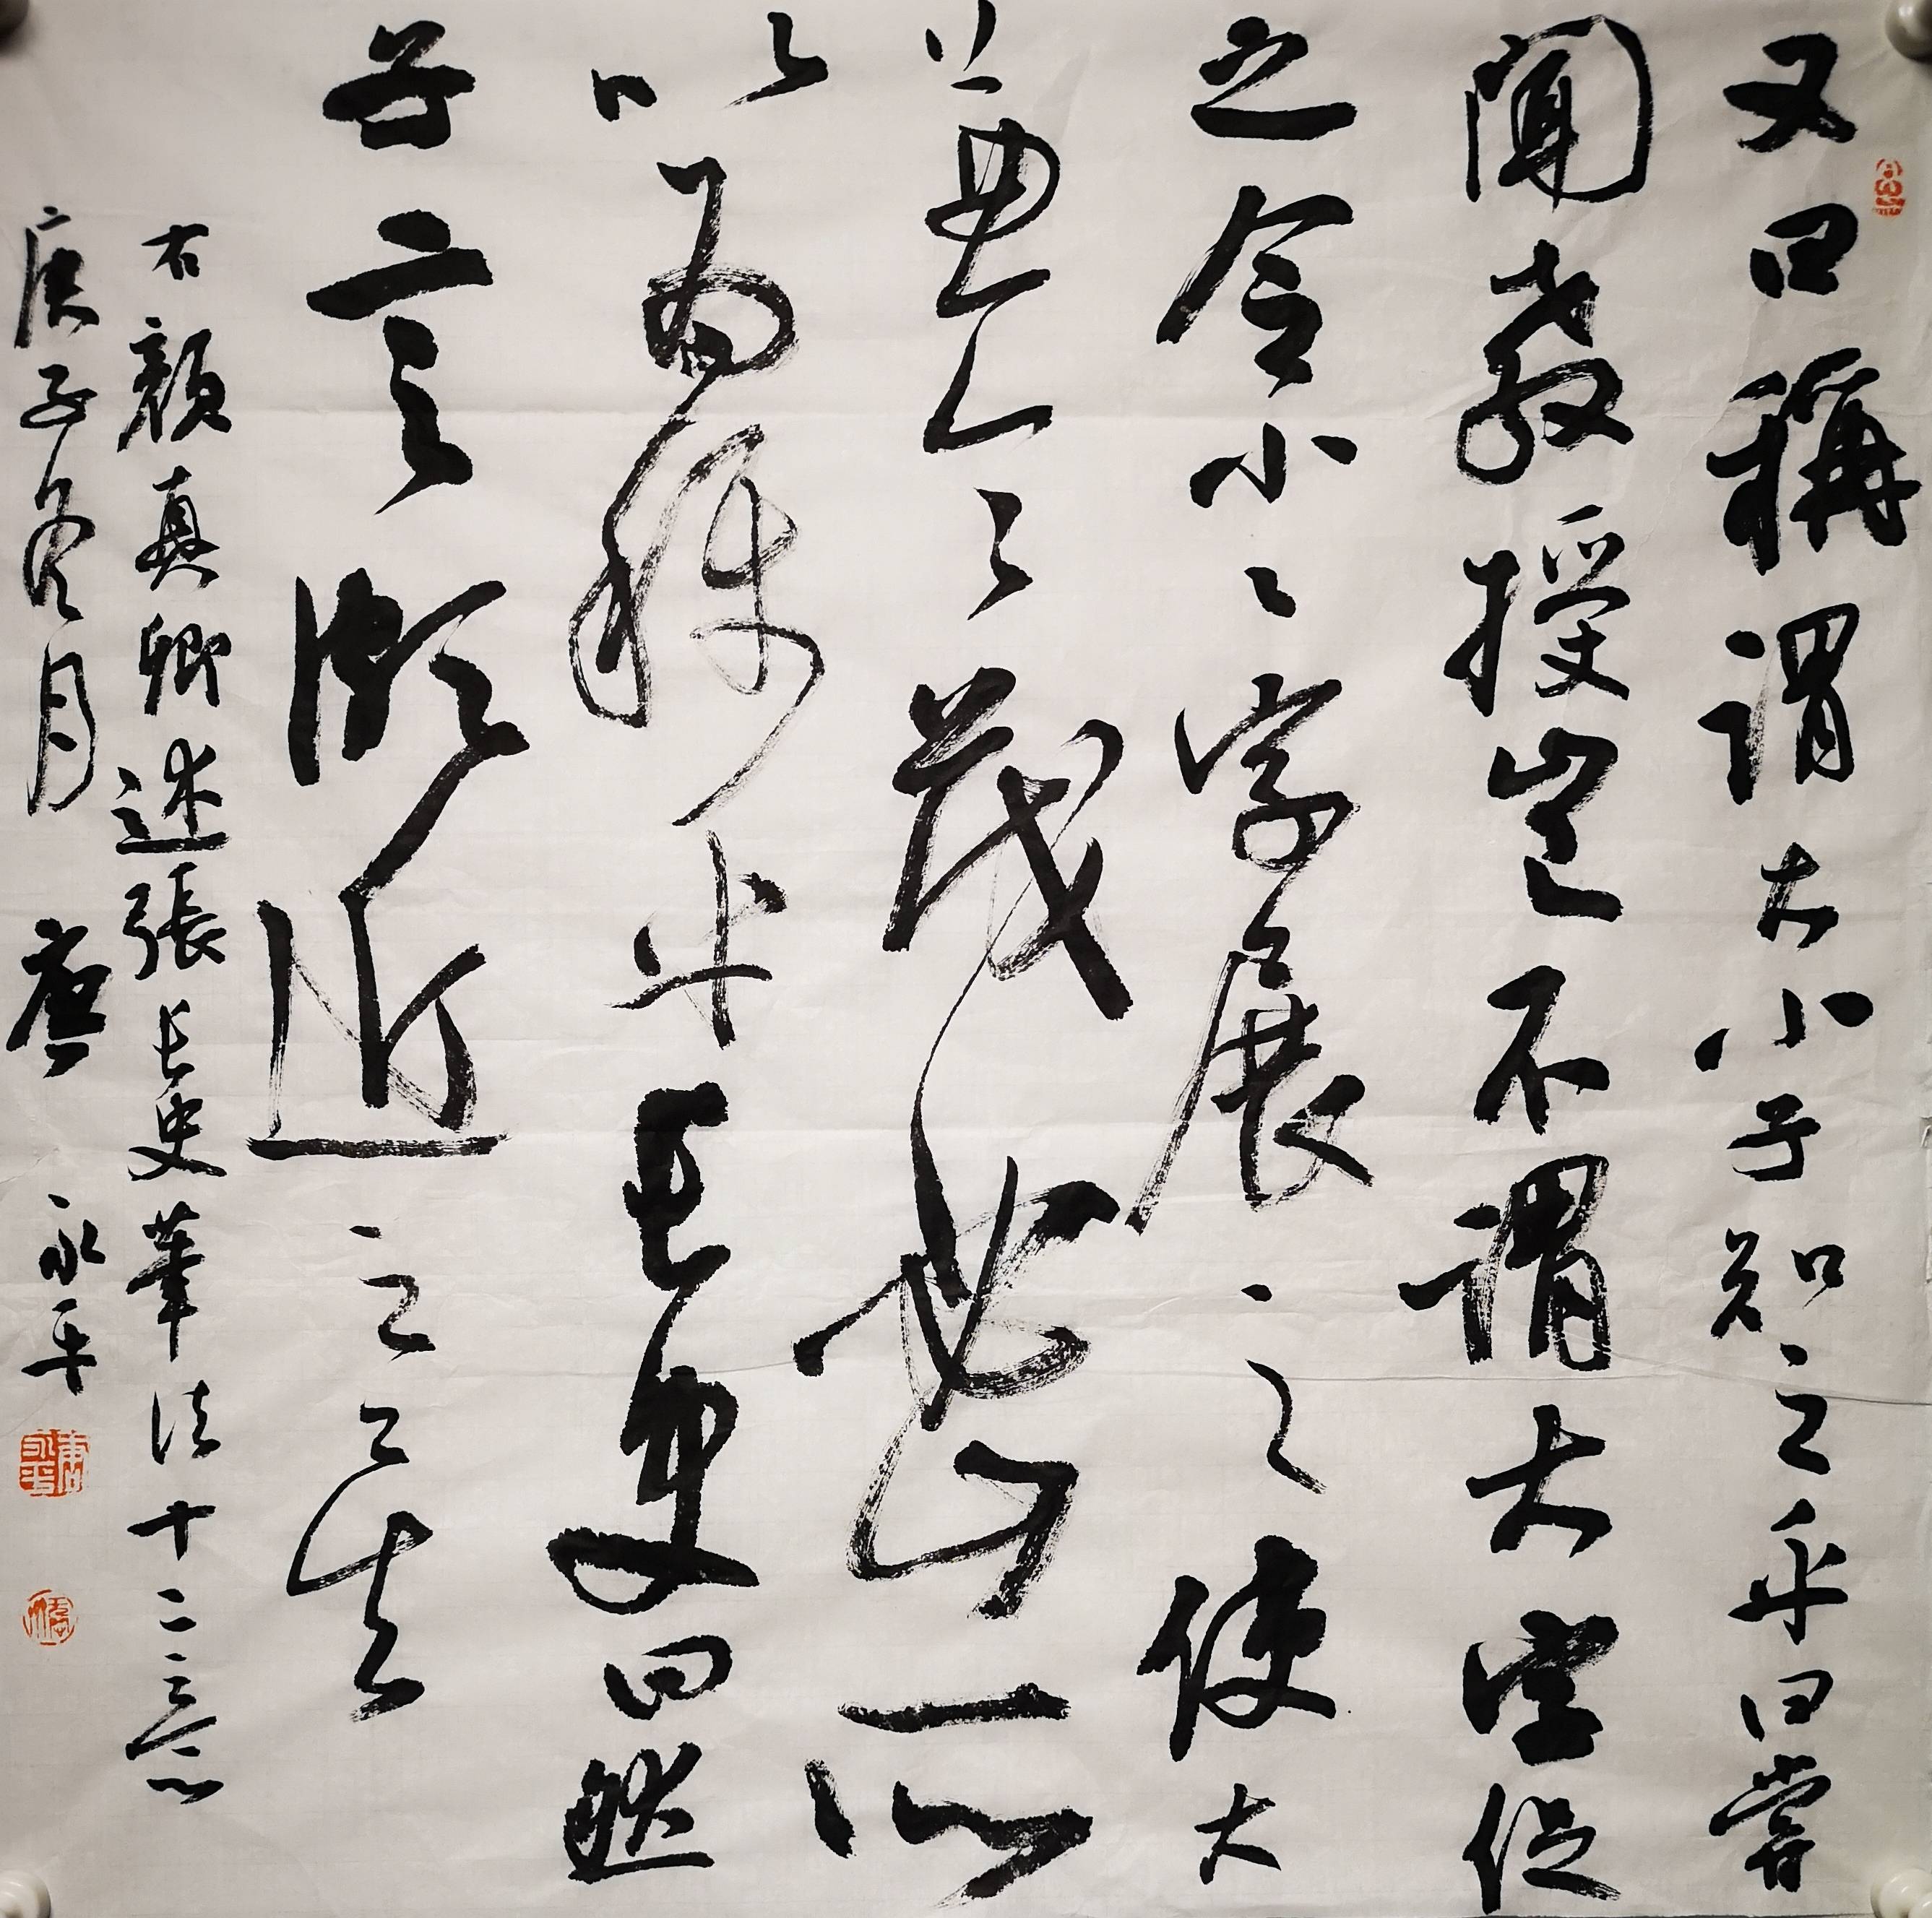 又曰稱謂大小子知之乎曰嘗
聞教授豈不謂大字促
之令小小字展之使大
兼令茂密所
以為稱乎長史曰然
子言頗近之矣
右顏真卿述張長史筆法十二意
庚子冬月 唐永平